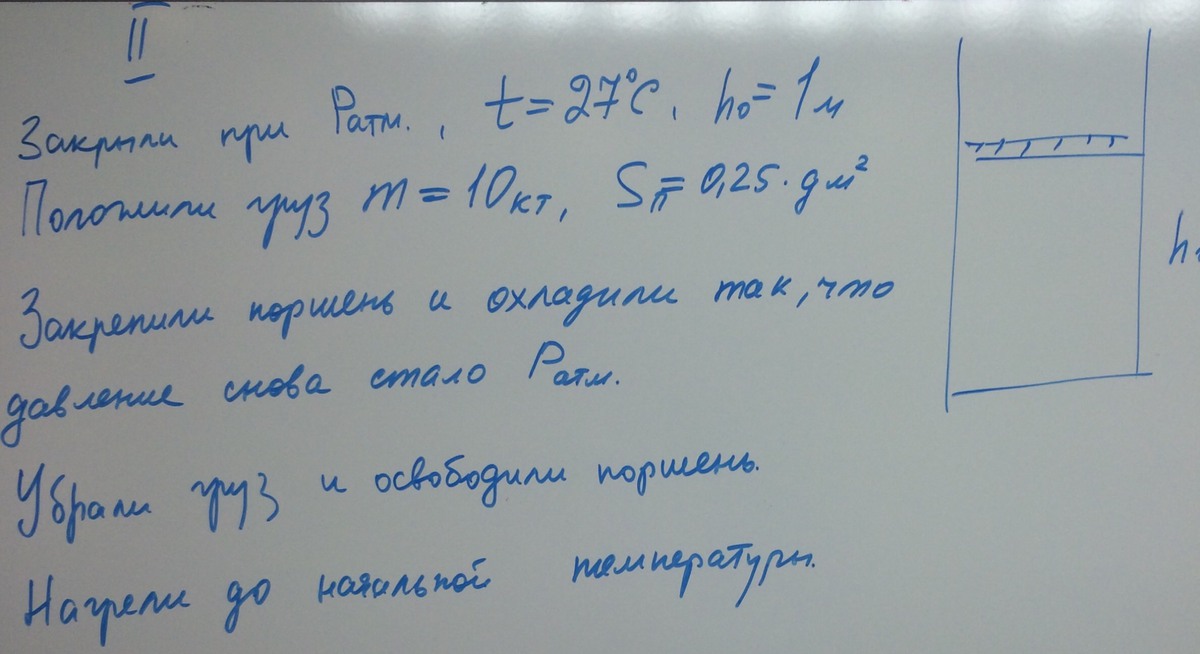 II
Закрыли при Pатм., t = 27°C, h₀ = 1м
Положили груз m = 10кг, Sп = 0,25 · дм²
Закрепили поршень и охладили так, что
давление снова стало Pатм.
Убрали груз и освободили поршень.
Нагрели до начальной температуры.
h